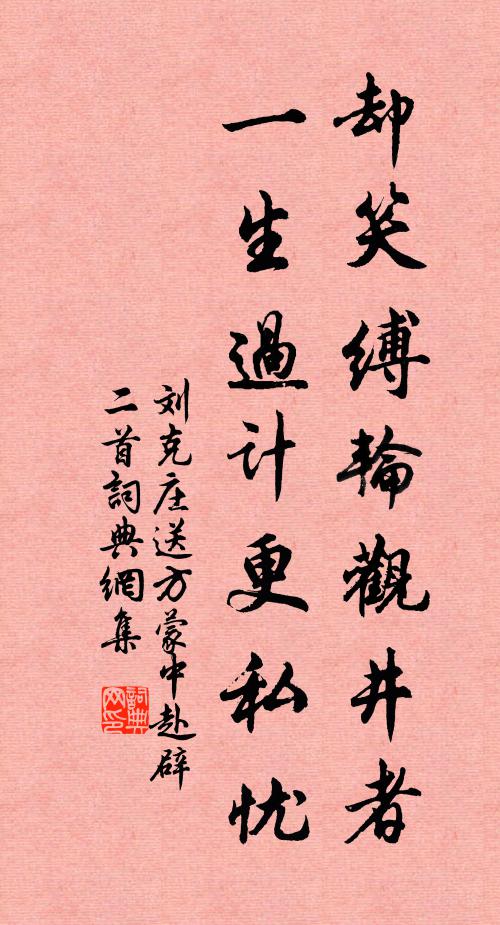 却笑缚輪觀井者
一生過计更私忧
刘克庄送方蒙中赴辟
二首詞典網集
詞典网印